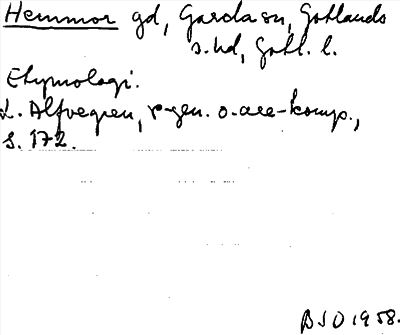 Hemmor gd, Garda sn, Gotlands
s. hd, Gotl. l.
Etymologi.
L. Alfvegren, r-gen. o. are-komp.,
s. 172.
BSO 1958.